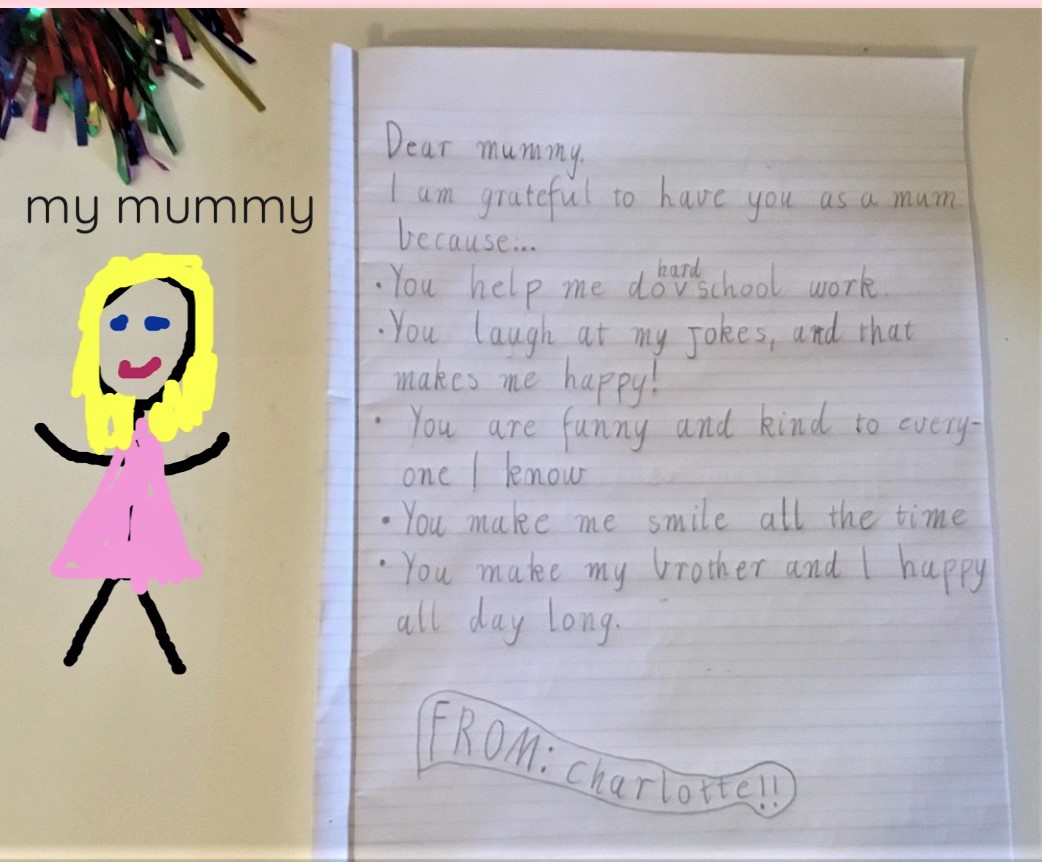 my mummy
Dear mummy,
I am grateful to have you as a mum
because...
• You help me do hard school work.
• You laugh at my jokes, and that
makes me happy!
• You are funny and kind to every-
one I know
• You make me smile all the time
• You make my brother and I happy
all day long.
FROM: Charlotte!!